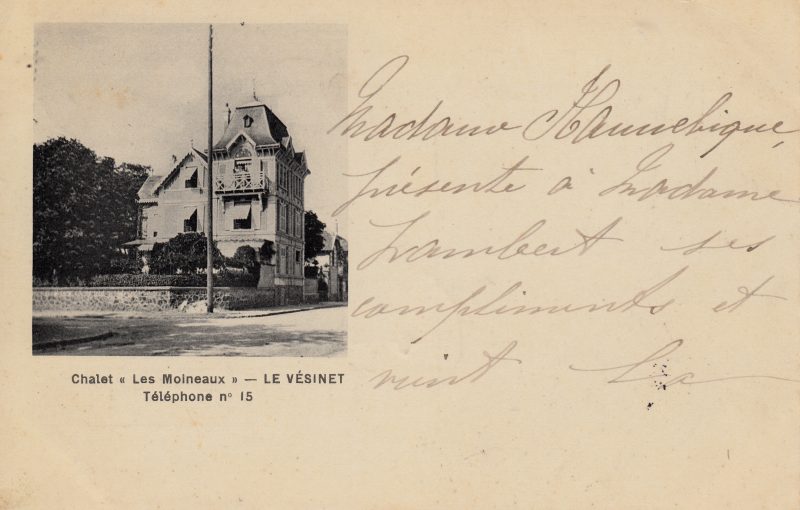 Madame Hannebique,
présente à Madame
Lambert ses
compliments et
vient la
Chalet « Les Moineaux » — LE VÉSINET
Téléphone n° 15